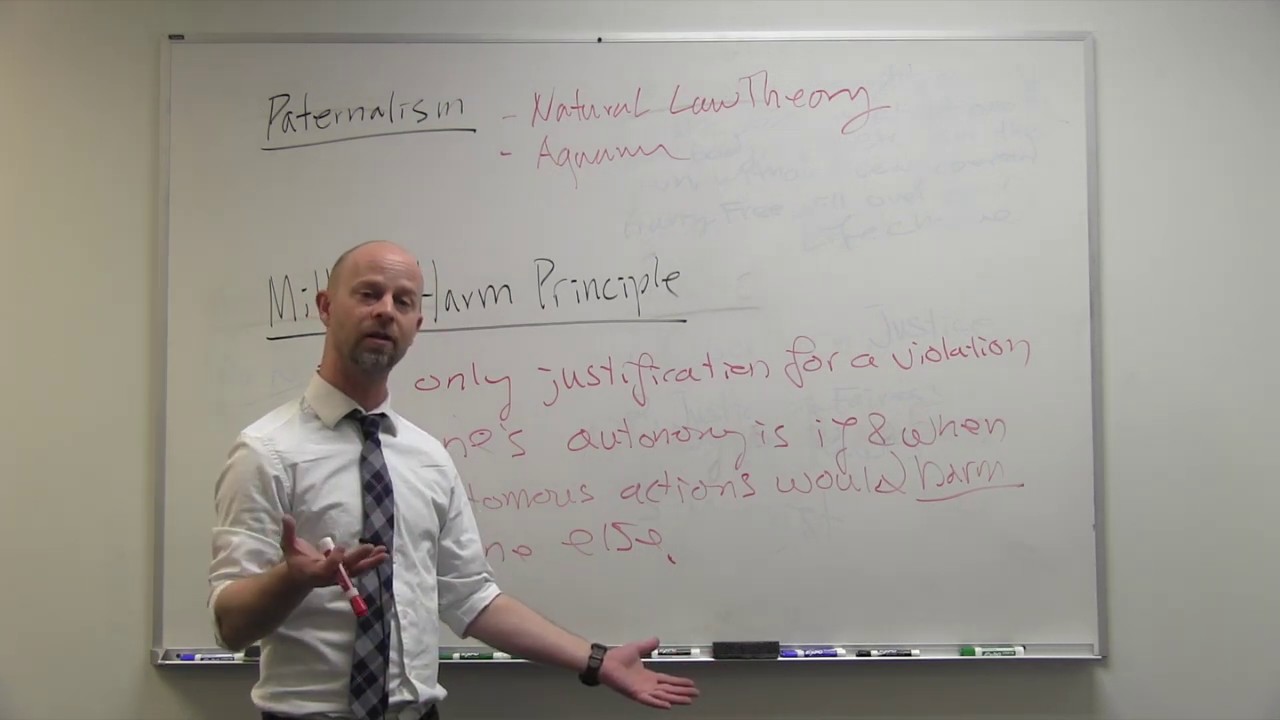 Paternalism - Natural Law Theory
- Aquinas
Harm Principle
only justification for a violation
autonomy is if & when
actions would harm
else.